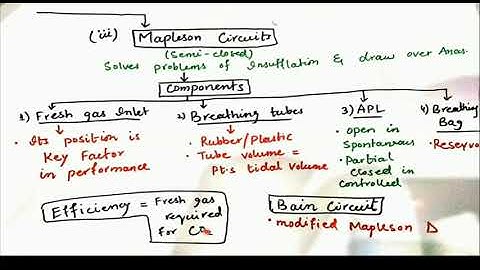 (iii) Mapleson Circuits
(Semi-closed)
Solves problems of Insufflation & draw over Anas.
Components
1) Fresh gas Inlet
• Its position is
Key Factor
in performance
2) Breathing tubes
• Rubber/Plastic
• Tube volume =
Pt.s tidal volume
3) APL
• open in
Spontaneous
• Partial
closed in
controlled
4) Breathing
Bag
• Reservo
Efficiency = Fresh gas
required
for CO2
Bain Circuit
• modified Mapleson D